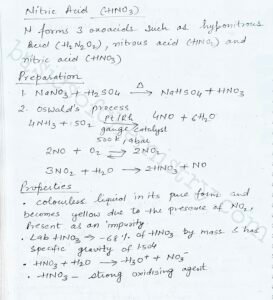 Nitric Acid (HNO3)
N forms 3 oxoacids such as hyponitrous
Acid (H2N2O2), nitrous acid (HNO2) and
nitric acid (HNO3)
Preparation
1. NaNO3 + H2SO4 —Δ→ NaHSO4 + HNO3
2. Oswald's process
4NH3 + 5O2 —Pt/Rh→ 4NO + 6H2O
gauge catalyst
500K, 9bar
2NO + O2 ⇌ 2NO2
3NO2 + H2O → 2HNO3 + NO
Properties
• colourless liquid in its pure form and
becomes yellow due to the presence of NO2,
Present as an impurity
• Lab HNO3 → ~68% of HNO3 by mass & has
specific gravity of 1.504
• HNO3 + H2O → H3O+ + NO3-
• HNO3 - strong oxidising agent